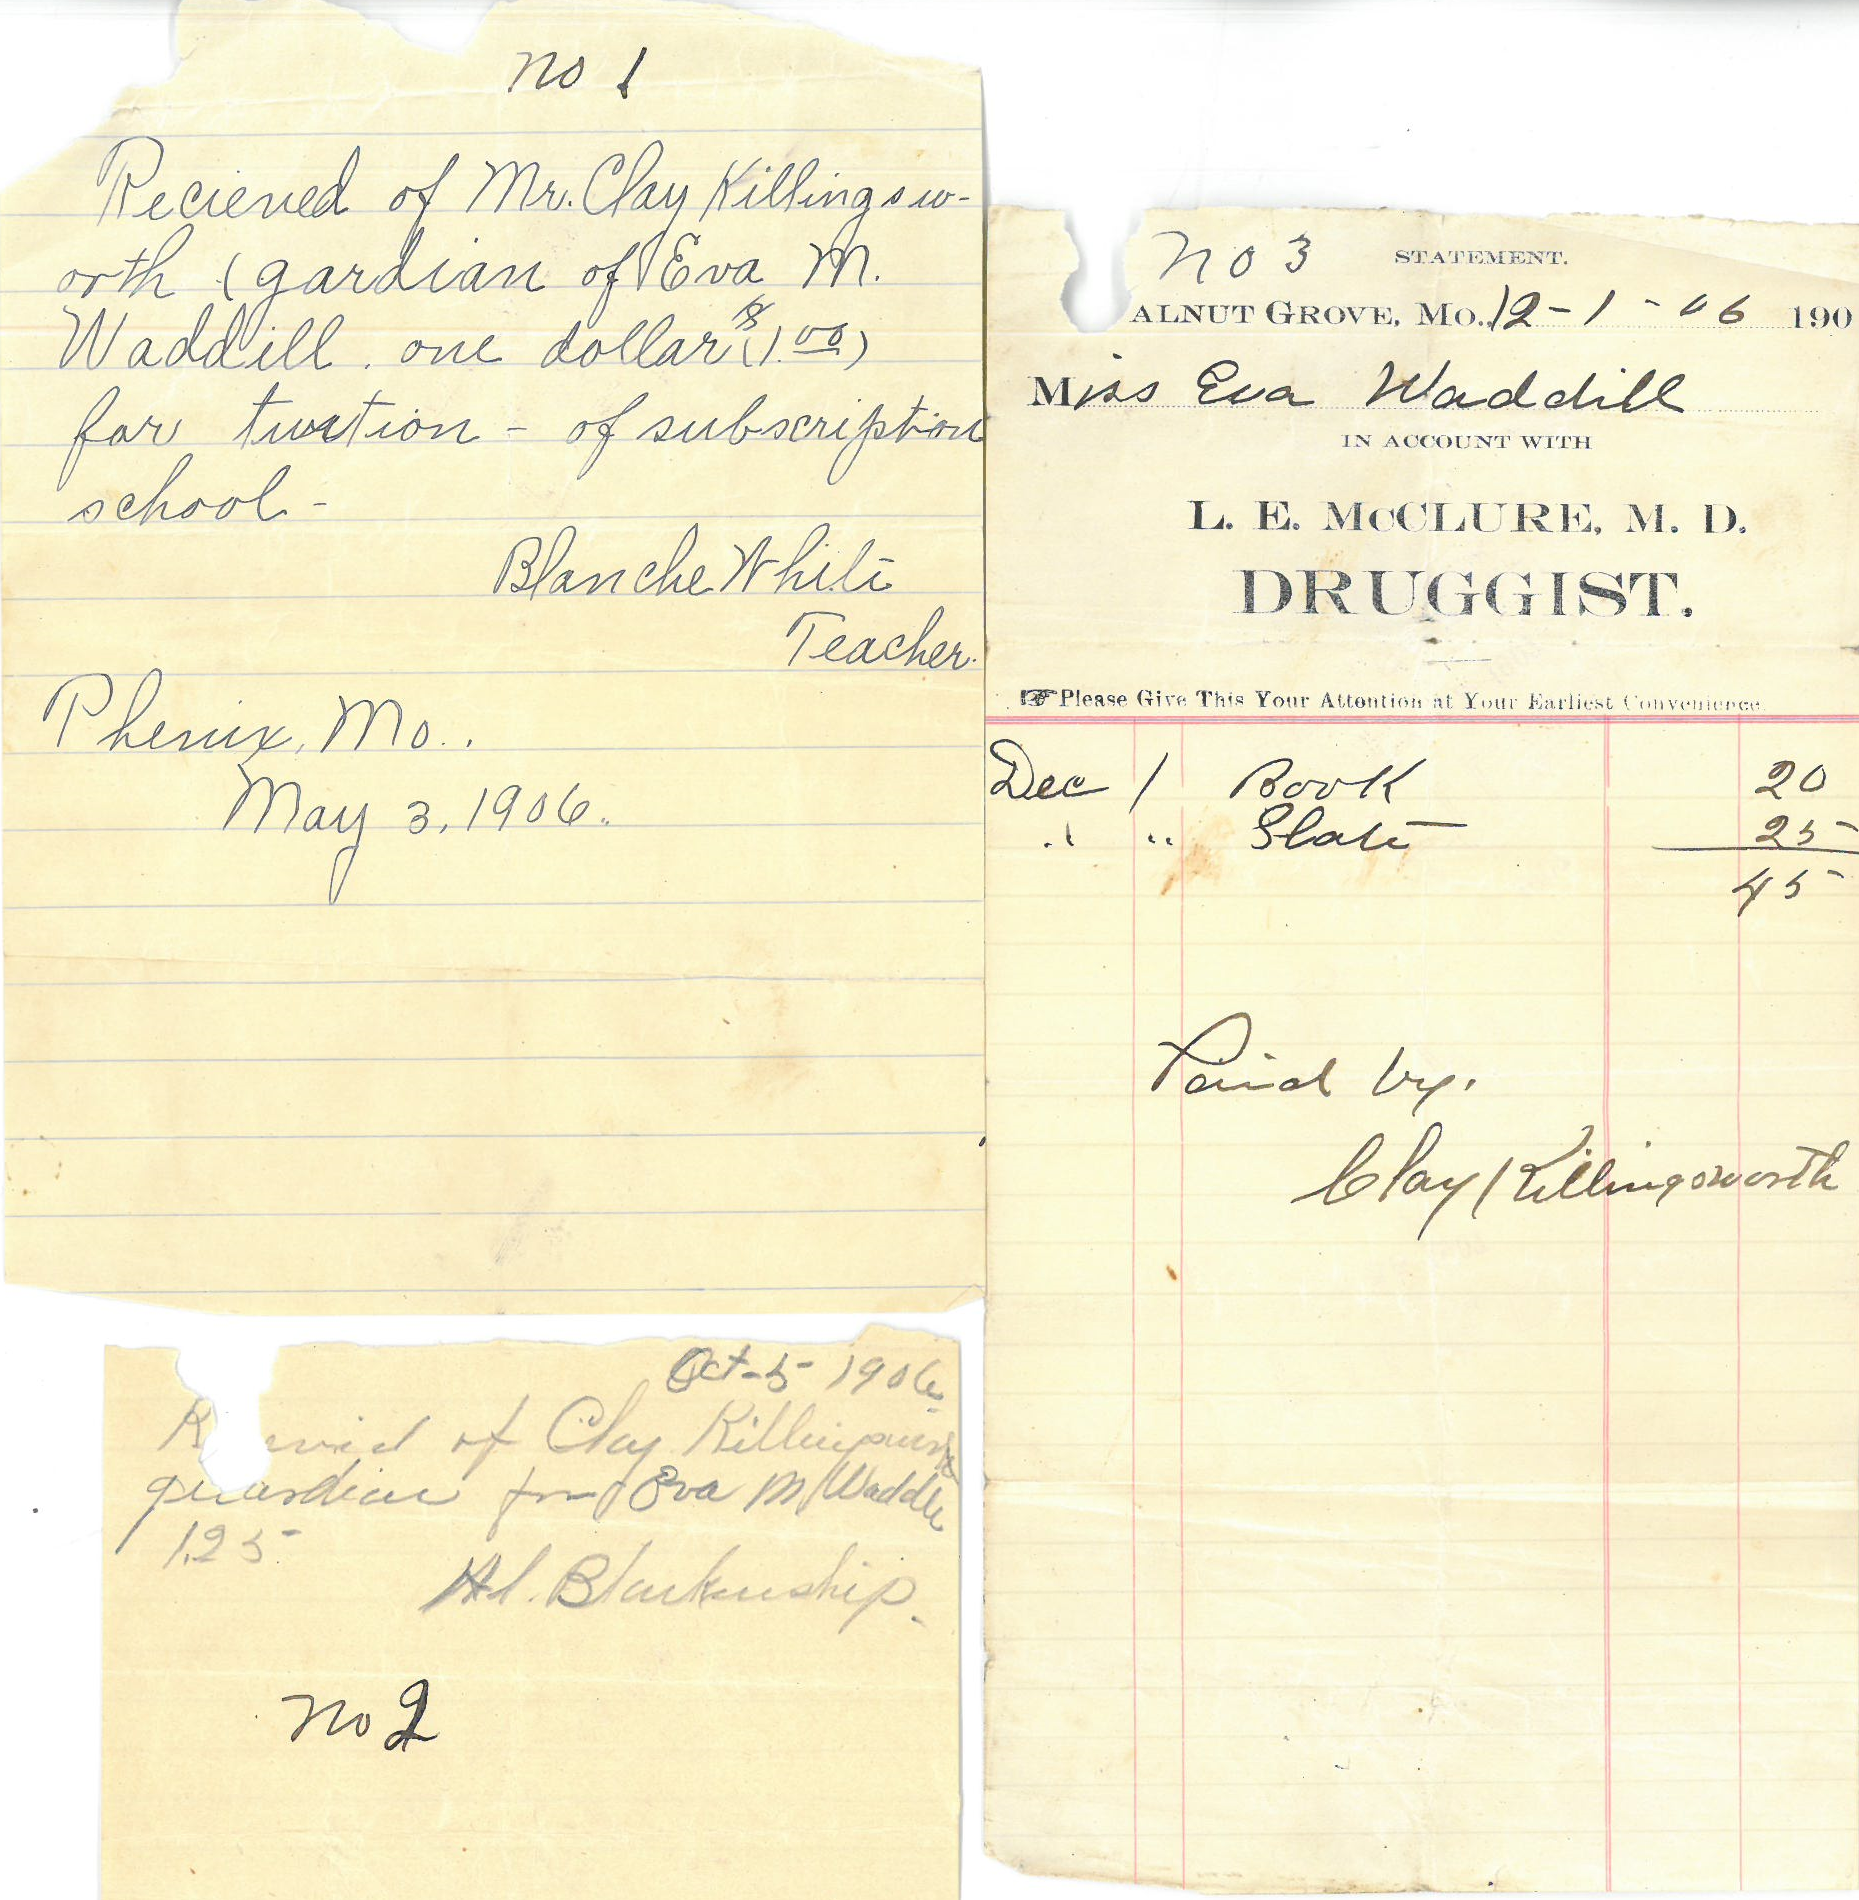 no 1
Recieved of Mr. Clay Killingsw-
orth (gardian of Eva M.
Waddill. one dollar $(1.00)
for tution - of subscription
school -
Blanche White
Teacher.
Phenix, Mo..
May 3, 1906.
Oct-5-1906
R vied of Clay Killingsworth
guardian for Eva M Waddle
1.25
Blankenship.
no 2
no 3 STATEMENT.
ALNUT GROVE, MO., 12-1-06 190
Miss Eva Waddill
IN ACCOUNT WITH
L. E. McCLURE, M. D.
DRUGGIST.
☞ Please Give This Your Attention at Your Earliest Convenience.
Dec 1 Book 20
" " Slate 25
45
Paid by.
Clay Killingsworth